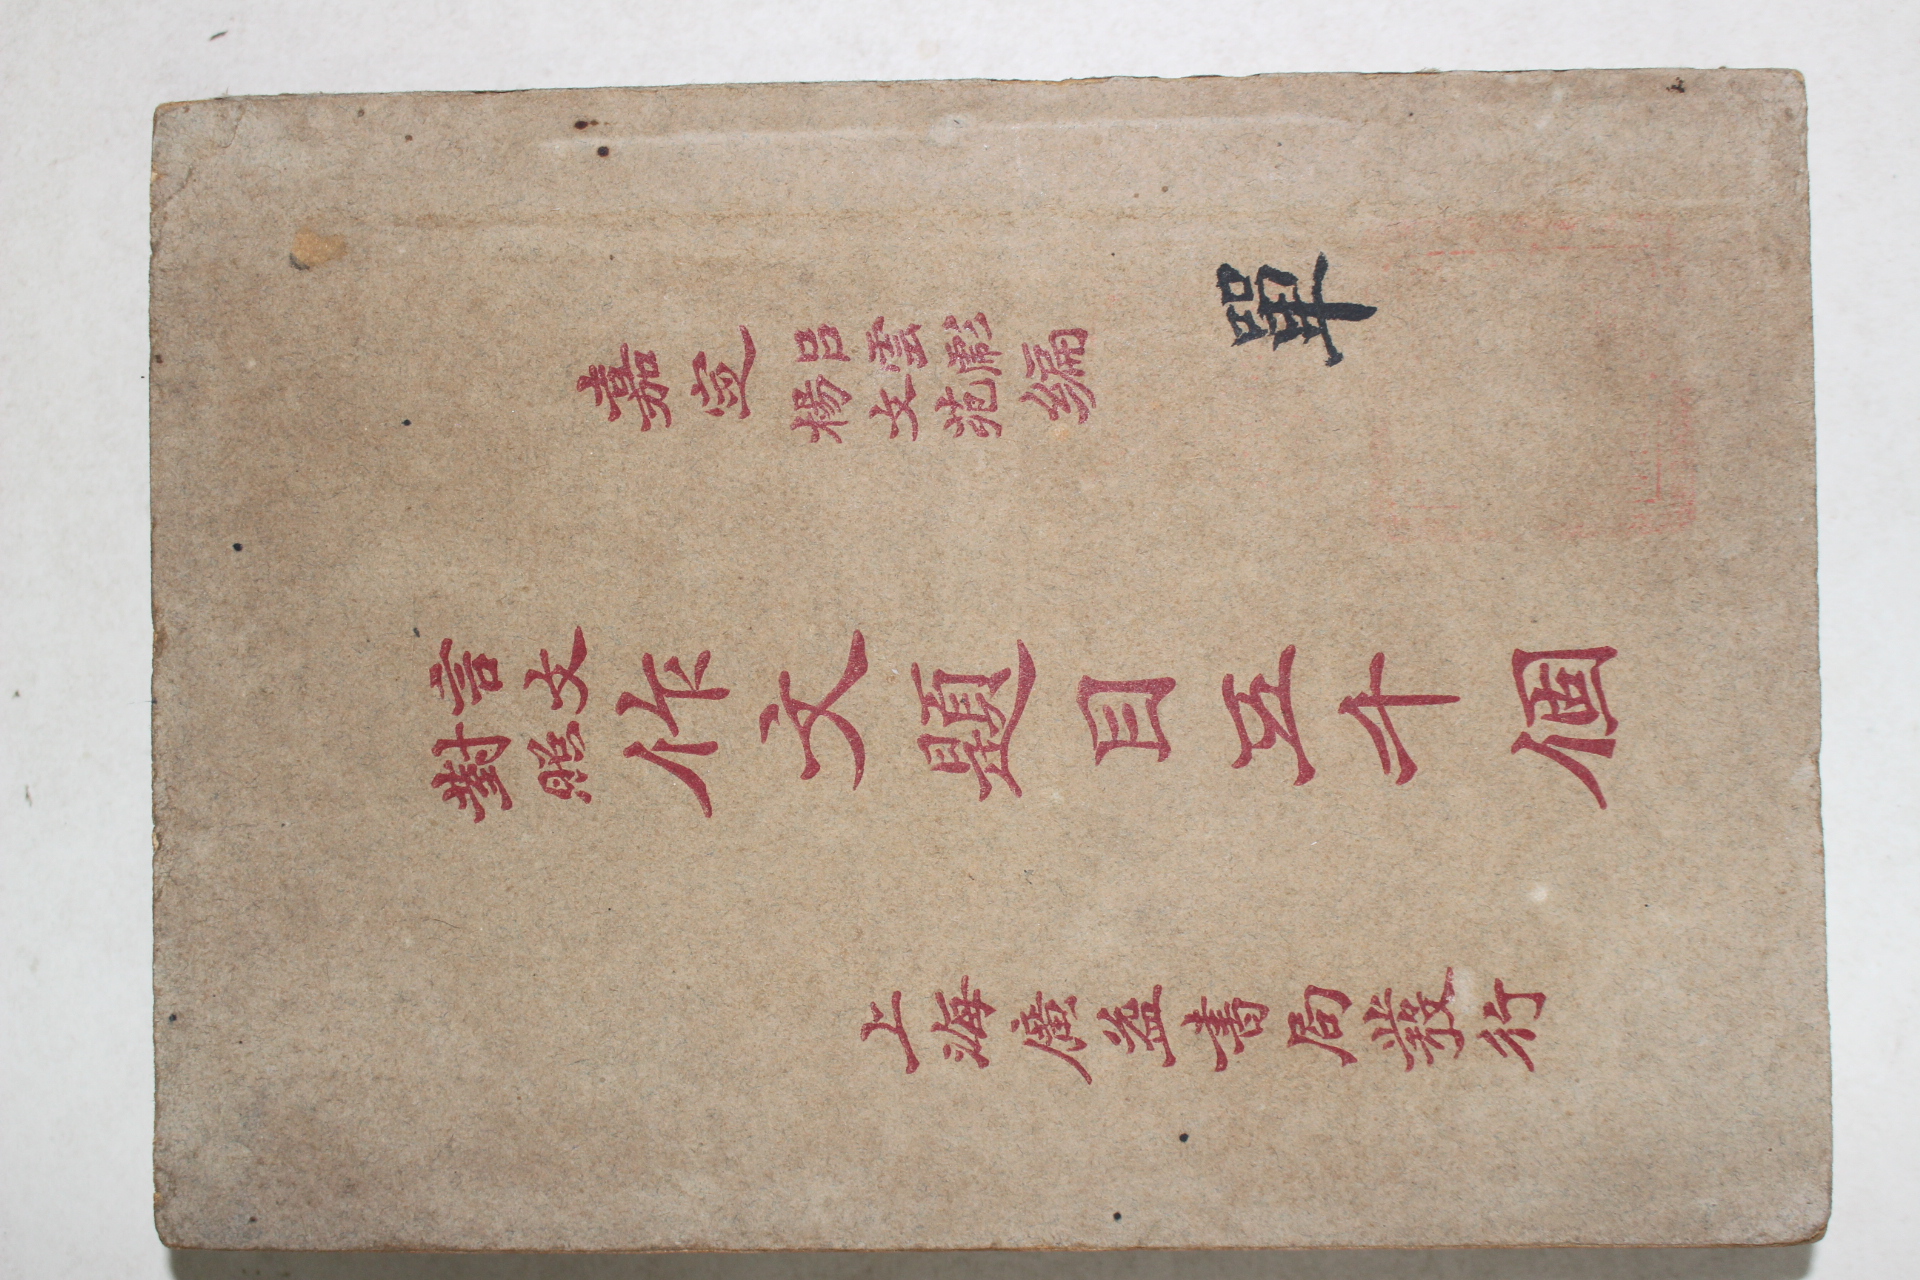 嘉定呂雲彪楊文苑編
單
言文對照作文題目五千個
上海廣益書局發行